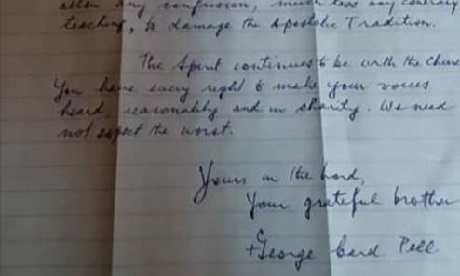 allow any confusion, much less any contrary
teaching, to damage the Apostolic Tradition.
The Spirit continues to be with the Church
You have every right to make your voices
heard, reasonably and in charity. We need
not expect the worst.
Yours in the Lord,
Your grateful brother
+George Card. Pell